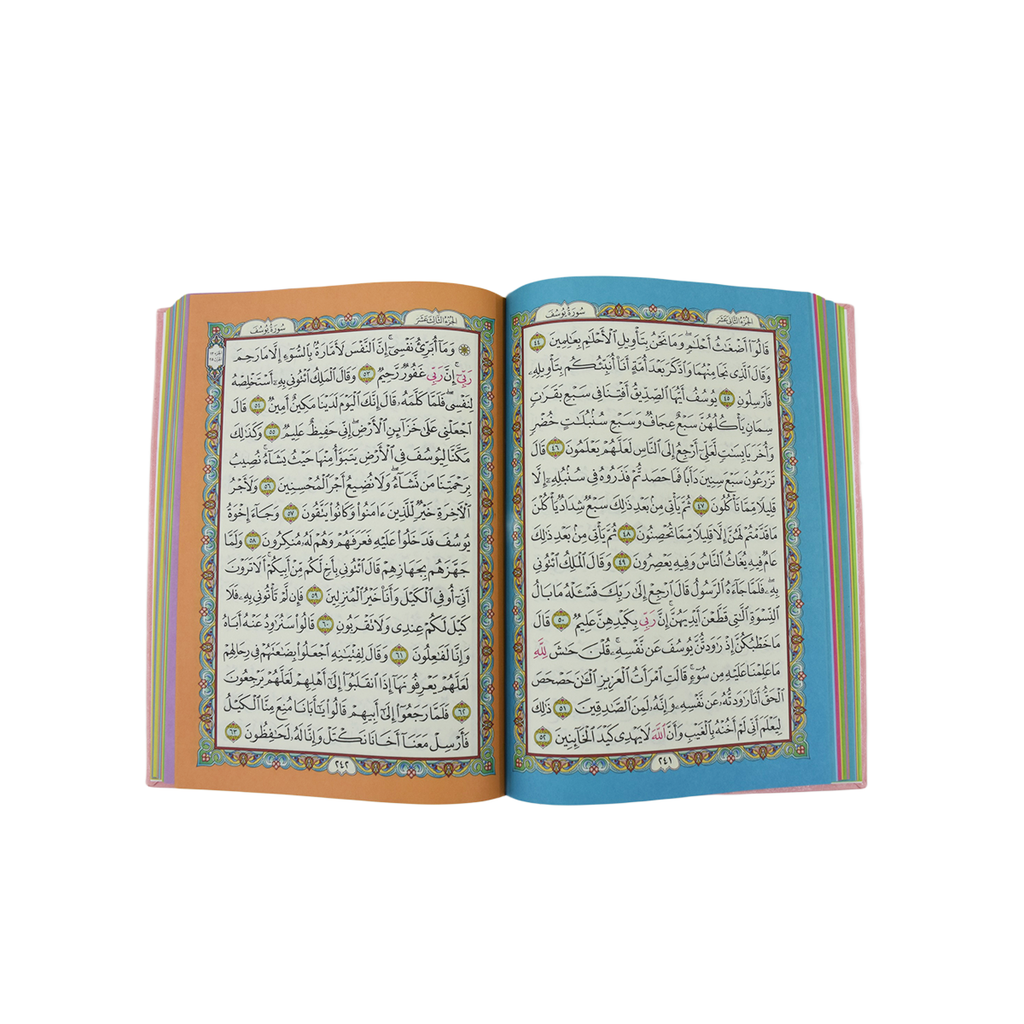 الجزء الثاني عشر
سورة يوسف
قَالُوٓاْ أَضْغَٰثُ أَحْلَٰمٖۖ وَمَا نَحْنُ بِتَأْوِيلِ ٱلْأَحْلَٰمِ بِعَٰلِمِينَ ٤٤
وَقَالَ ٱلَّذِي نَجَا مِنْهُمَا وَٱدَّكَرَ بَعْدَ أُمَّةٍ أَنَا۠ أُنَبِّئُكُم بِتَأْوِيلِهِۦ
فَأَرْسِلُونِ ٤٥ يُوسُفُ أَيُّهَا ٱلصِّدِّيقُ أَفْتِنَا فِي سَبْعِ بَقَرَٰتٖ
سِمَانٖ يَأْكُلُهُنَّ سَبْعٌ عِجَافٞ وَسَبْعِ سُنۢبُلَٰتٍ خُضْرٖ
وَأُخَرَ يَابِسَٰتٖ لَّعَلِّيٓ أَرْجِعُ إِلَى ٱلنَّاسِ لَعَلَّهُمْ يَعْلَمُونَ ٤٦ قَالَ
تَزْرَعُونَ سَبْعَ سِنِينَ دَأَبٗا فَمَا حَصَدتُّمْ فَذَرُوهُ فِي سُنۢبُلِهِۦٓ إِلَّا
قَلِيلٗا مِّمَّا تَأْكُلُونَ ٤٧ ثُمَّ يَأْتِي مِنۢ بَعْدِ ذَٰلِكَ سَبْعٞ شِدَادٞ يَأْكُلْنَ
مَا قَدَّمْتُمْ لَهُنَّ إِلَّا قَلِيلٗا مِّمَّا تُحْصِنُونَ ٤٨ ثُمَّ يَأْتِي مِنۢ بَعْدِ ذَٰلِكَ
عَامٞ فِيهِ يُغَاثُ ٱلنَّاسُ وَفِيهِ يَعْصِرُونَ ٤٩ وَقَالَ ٱلْمَلِكُ ٱئْتُونِي
بِهِۦۖ فَلَمَّا جَآءَهُ ٱلرَّسُولُ قَالَ ٱرْجِعْ إِلَىٰ رَبِّكَ فَسْـَٔلْهُ مَا بَالُ
ٱلنِّسْوَةِ ٱلَّٰتِي قَطَّعْنَ أَيْدِيَهُنَّۚ إِنَّ رَبِّي بِكَيْدِهِنَّ عَلِيمٞ ٥٠ قَالَ
مَا خَطْبُكُنَّ إِذْ رَٰوَدتُّنَّ يُوسُفَ عَن نَّفْسِهِۦۚ قُلْنَ حَٰشَ لِلَّهِ
مَا عَلِمْنَا عَلَيْهِ مِن سُوٓءٖۚ قَالَتِ ٱمْرَأَتُ ٱلْعَزِيزِ ٱلْـَٰٔنَ حَصْحَصَ
ٱلْحَقُّ أَنَا۠ رَٰوَدتُّهُۥ عَن نَّفْسِهِۦ وَإِنَّهُۥ لَمِنَ ٱلصَّٰدِقِينَ ٥١ ذَٰلِكَ
لِيَعْلَمَ أَنِّي لَمْ أَخُنْهُ بِٱلْغَيْبِ وَأَنَّ ٱللَّهَ لَا يَهْدِي كَيْدَ ٱلْخَآئِنِينَ ٥٢
٢٤١
الجزء الثالث عشر
سورة يوسف
وَمَآ أُبَرِّئُ نَفْسِيٓۚ إِنَّ ٱلنَّفْسَ لَأَمَّارَةُۢ بِٱلسُّوٓءِ إِلَّا مَا رَحِمَ
رَبِّيٓۚ إِنَّ رَبِّي غَفُورٞ رَّحِيمٞ ٥٣ وَقَالَ ٱلْمَلِكُ ٱئْتُونِي بِهِۦٓ أَسْتَخْلِصْهُ
لِنَفْسِيۖ فَلَمَّا كَلَّمَهُۥ قَالَ إِنَّكَ ٱلْيَوْمَ لَدَيْنَا مَكِينٌ أَمِينٞ ٥٤ قَالَ
ٱجْعَلْنِي عَلَىٰ خَزَآئِنِ ٱلْأَرْضِۖ إِنِّي حَفِيظٌ عَلِيمٞ ٥٥ وَكَذَٰلِكَ
مَكَّنَّا لِيُوسُفَ فِي ٱلْأَرْضِ يَتَبَوَّأُ مِنْهَا حَيْثُ يَشَآءُۚ نُصِيبُ
بِرَحْمَتِنَا مَن نَّشَآءُۖ وَلَا نُضِيعُ أَجْرَ ٱلْمُحْسِنِينَ ٥٦ وَلَأَجْرُ
ٱلْأٓخِرَةِ خَيْرٞ لِّلَّذِينَ ءَامَنُواْ وَكَانُواْ يَتَّقُونَ ٥٧ وَجَآءَ إِخْوَةُ
يُوسُفَ فَدَخَلُواْ عَلَيْهِ فَعَرَفَهُمْ وَهُمْ لَهُۥ مُنكِرُونَ ٥٨ وَلَمَّا
جَهَّزَهُم بِجَهَازِهِمْ قَالَ ٱئْتُونِي بِأَخٖ لَّكُم مِّنْ أَبِيكُمْۚ أَلَا تَرَوْنَ
أَنِّيٓ أُوفِي ٱلْكَيْلَ وَأَنَا۠ خَيْرُ ٱلْمُنزِلِينَ ٥٩ فَإِن لَّمْ تَأْتُونِي بِهِۦ فَلَا
كَيْلَ لَكُمْ عِندِي وَلَا تَقْرَبُونِ ٦٠ قَالُواْ سَنُرَٰوِدُ عَنْهُ أَبَاهُ
وَإِنَّا لَفَٰعِلُونَ ٦١ وَقَالَ لِفِتْيَٰنِهِ ٱجْعَلُواْ بِضَٰعَتَهُمْ فِي رِحَالِهِمْ
لَعَلَّهُمْ يَعْرِفُونَهَآ إِذَا ٱنقَلَبُوٓاْ إِلَىٰٓ أَهْلِهِمْ لَعَلَّهُمْ يَرْجِعُونَ
٦٢ فَلَمَّا رَجَعُوٓاْ إِلَىٰٓ أَبِيهِمْ قَالُواْ يَٰٓأَبَانَا مُنِعَ مِنَّا ٱلْكَيْلُ
فَأَرْسِلْ مَعَنَآ أَخَانَا نَكْتَلْ وَإِنَّا لَهُۥ لَحَٰفِظُونَ ٦٣
٢٤٢